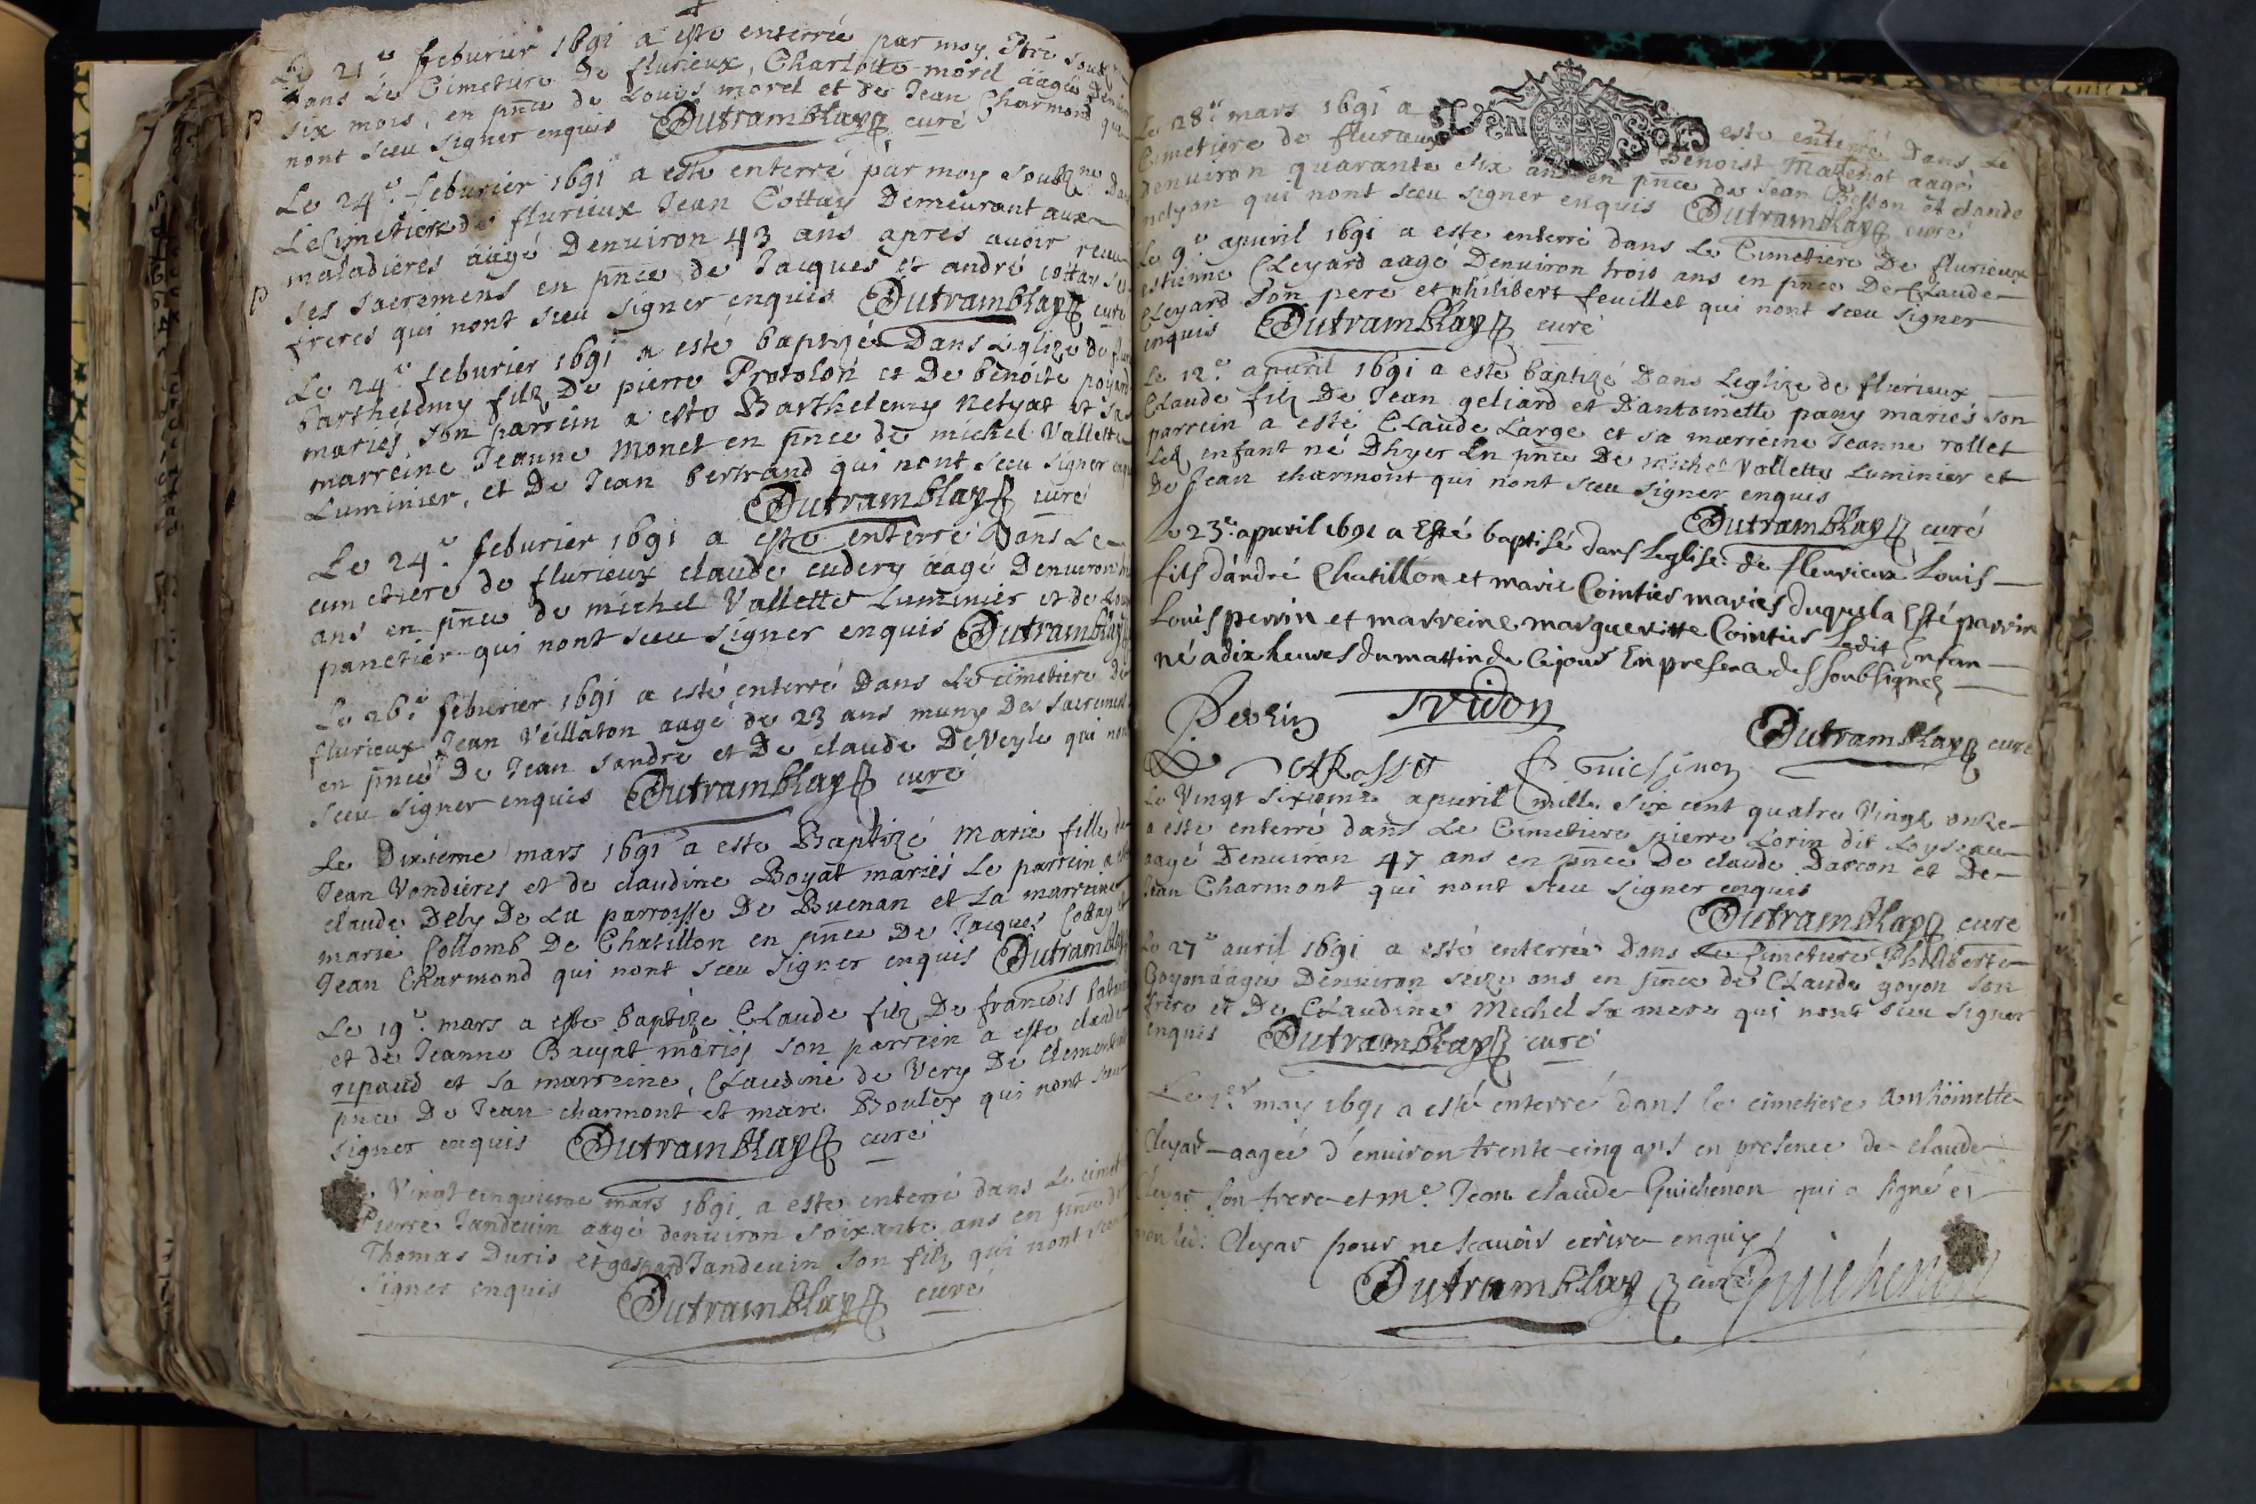 Le 21e feburier 1691 a esté enterré par moy Ptre soubz
dans Le Cimetiere De flurieux, Charlotte morel aagée Denviron
six mois, en pnce de Louys morel et de Jean Charmond qui
nont sceu signer enquis Dutramblay curé
Le 24e feburier 1691 a esté enterré par moy soubzne Dans
Le Cimetiere de flurieux Jean Cottay Demeurant aux
maladieres aagé Denuiron 43 ans apres auoir receu
ses sacremens en pnce de Jacques et andré cottay ses
freres qui nont sceu signer enquis Dutramblay curé
Le 24e feburier 1691 a esté baptizé Dans Leglize De
barthelemy filz De pierre Protolon et De benoite poyard
mariés son parrein a esté Barthelemy Netyat et sa
marreine Jeanne Monet en pnce de michel Vallette
Luminier, et De Jean bertrand qui nont sceu signer enquis
Dutramblay curé
Le 24e feburier 1691 a esté enterré Dans Le
cimetiere de flurieux claude cudery aagé Denuiron
ans en pnce de michel Vallette Luminier et de Louis
panetier qui nont sceu signer enquis Dutramblay
Le 26e feburier 1691 a esté enterré Dans Le cimetiere De
flurieux Jean Veillaton aagé de 23 ans muny Des sacremens
en pnce De Jean sandre et De claude DeVeyle qui nont
sceu signer enquis Dutramblay curé
Le Dixieme mars 1691 a esté Baptizé marie fille de
Jean Vondieres et de claudine Boyat mariés Le parrein a esté
claude Dely De La parroisse De Buenan et La marreine
marie Collomb De Chatillon en pnce De Jacques Cottay et
Jean Charmond qui nont sceu signer enquis Dutramblay
Le 19e mars a esté baptizé Claude filz De francois
et de Jeanne Bacyat mariés son parrein a esté claude
ripaud et sa marreine, Claudine de Very De
pnce De Jean charmont et marc Bouley qui nont sceu
signer enquis Dutramblay curé
Le Vingt cinquieme mars 1691 a esté enterré dans Le cimetiere
Pierre Jandeuin aagé denuiron soixante ans en pnce de
Thomas Duris et gaspard Jandeuin son filz qui nont sceu
signer enquis Dutramblay curé
2
DEN SOLS
Le 28e mars 1691 a esté enterré Dans Le
Cimetiere de flurieux Benoist Mathenot aagé
denuiron quarante six ans en pnce de Jean Besson et claude
nelyan qui nont sceu signer enquis Dutramblay curé
Le 9e apuril 1691 a esté enterré dans Le Cimetiere De flurieux
estienne Cleyard aagé Denuiron trois ans en pnce De Claude
Cleyard son pere et philibert feuillet qui nont sceu signer
enquis Dutramblay curé
Le 12e apuril 1691 a esté baptizé Dans Leglize de flurieux
Claude filz De Jean geliard et D'antoinette pany mariés son
parrein a esté Claude Large et sa marreine Jeanne rollet
Led enfant né Dhyer En pnce De michel Vallette Luminier et
De Jean charmont qui nont sceu signer enques
Dutramblay curé
Le 23e apuril 1691 a Esté baptisé dans Leglise de fleurieux Louis
fils d'andré Chatillon et marie Cointies mariés duquel a Esté parrin
Louis perrin et marreine margueritte Cointies Ledit Enfan
né a dix heures du mattin de Ce jour En presence des soubsignez
Perrin
Dutramblay curé
ARosset Guichenon
Le Vingt sixieme apuril mille six cent quatre Vingt onze
a esté enterré dans Le Cimetiere pierre Lorin dit Loyseau
aagé Denuiron 47 ans en pnce De claude Darcon et De
Jean Charmont qui nont sceu signer enques
Dutramblay curé
Le 27e avril 1691 a esté enterrée Dans Le Cimetiere Philiberte
Goyon aagée Denuiron seize ans en pnce de Claude goyon son
frere et De Claudine Mechel sa mere qui nont sceu signer
enques Dutramblay curé
Le 1er may 1691 a esté enterré dans le cimetiere Anthoinette
Cleyat aagée d'enuiron trente cinq ans en presence de claude
Cleyat son frere et me. Jean claude Guichenon qui a signé et
non led: Cleyat pour ne scauoir ecrire enquis
Dutramblay curé Guichenon